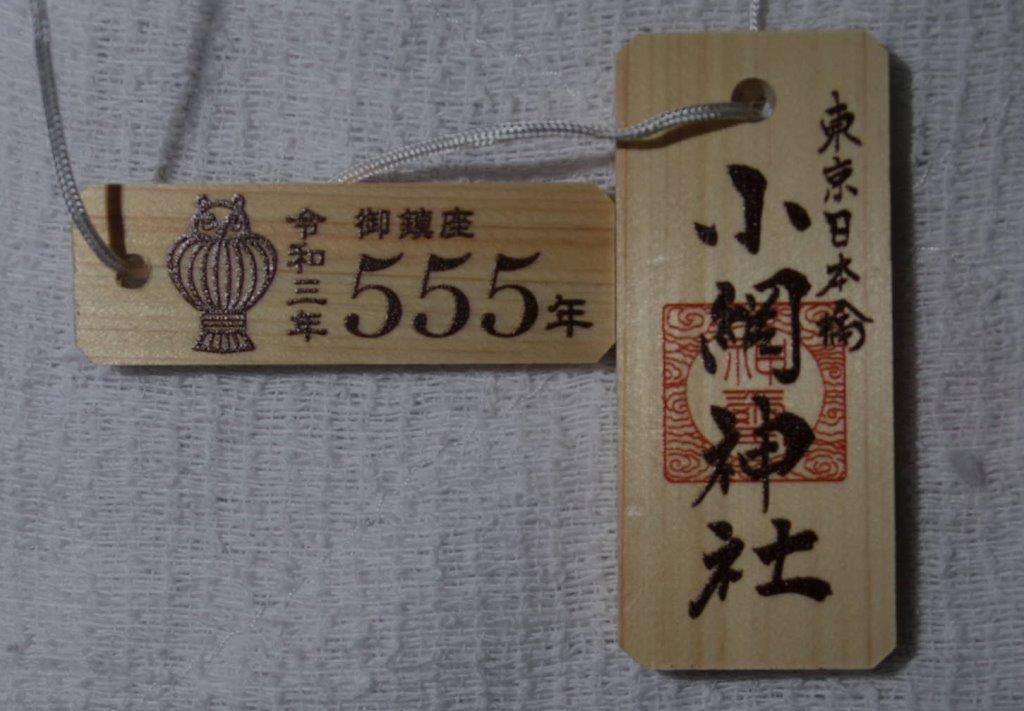 御鎮座
555年
令和三年
東京日本橋
小網神社